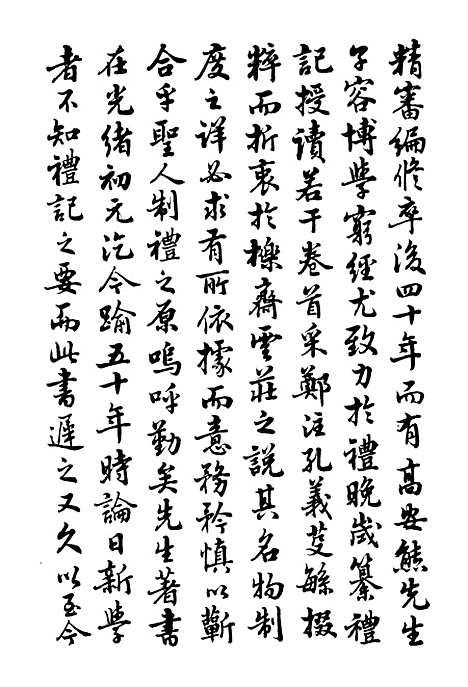 精審編修卒後四十年而有高安熊先生
子容博學窮經尤致力於禮晚歲纂禮
記授讀若干卷首采鄭注孔義芟繇掇
粹而折衷於櫟齋雲莊之說其名物制
度之詳必求有所依據而意務矜慎以蘄
合乎聖人制禮之原嗚呼勤矣先生著書
在光緒初元汔今踰五十年時論日新學
者不知禮記之要而此書遲之又久以至今